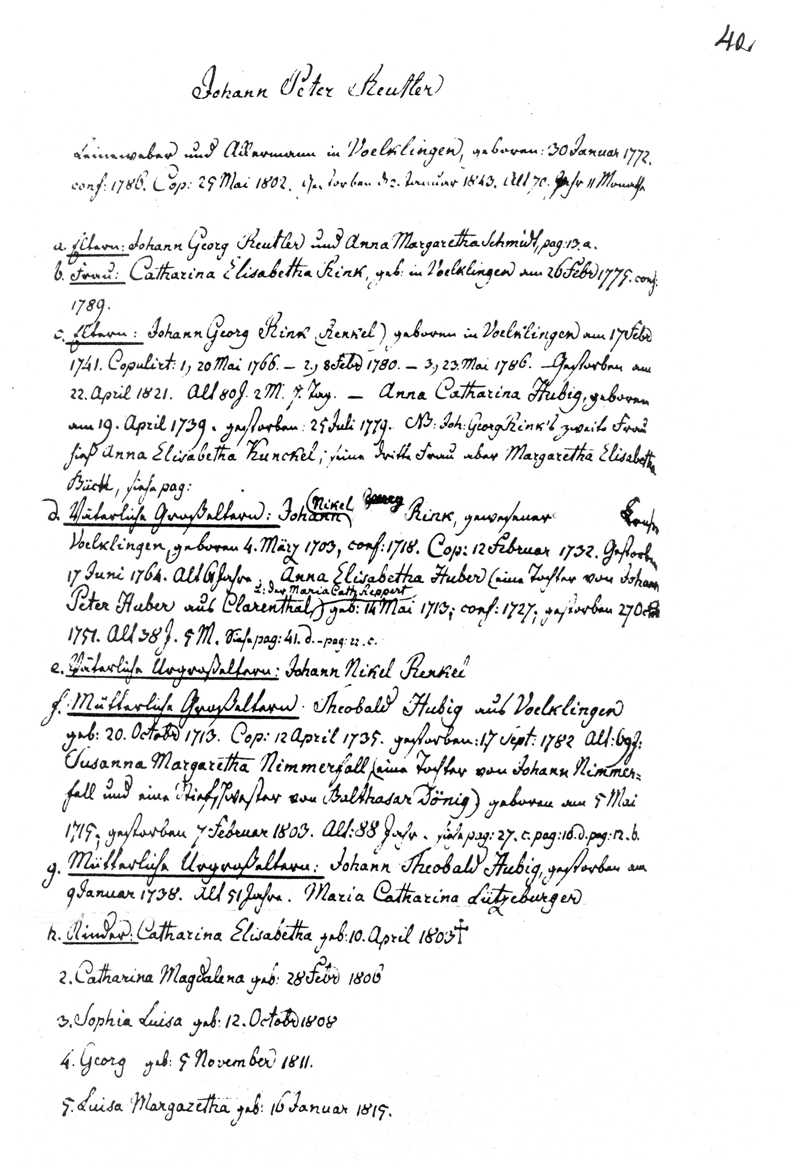 40.
Johann Peter Reutler
Leineweber und Akermann in Voelklingen, geboren: 30 Januar 1772.
conf: 1786. Cop: 25 Mai 1802. Gestorben d: 2. Januar 1843. Alt 70. Jahr 11 Monathe
a. Eltern: Johann Georg Reutler und Anna Margaretha Schmidt, pag: 13, a.
b. Frau: Catharina Elisabetha Rink, geb: in Voelklingen am 26 Febr 1775. conf:
1789.
c. Eltern: Johann Georg Rink (Renkel) geboren in Voelklingen am 17 Febr
1741. Copulirt: 1, 20 Mai 1766. – 2, 8 Febr 1780. – 3, 23. Mai 1786. – Gestorben am
22. April 1821. Alt 80 J. 2 M. 7. Tag. – Anna Catharina Hubig, geboren
am 19. April 1739. gestorben: 25 Juli 1779. NB: Joh: Georg Rink's zweite Frau
hieß Anna Elisabetha Kunckel; seine dritte Frau aber Margaretha Elisabetha
Büch, siehe pag:
d. Väterliche Großeltern: Johann (Nikel Rink, gewesener
Voelklingen, geboren 4. März 1703, conf: 1718. Cop: 12 Februar 1732. Gestorben
17 Juni 1764. Alt 61 Jahre. Anna Elisabetha Huber (eine Tochter von Johann
Peter Huber aus Clarenthal, u: der Maria Cath. Reppert) geb: 14 Mai 1713; conf: 1727, gestorben 27 Octbr
1751. Alt 38 J. 5 M. Siehe pag: 41. d. - pag: 22. c.
e. Väterliche Urgroßeltern: Johann Nikel Renkel
f. Mütterliche Großeltern. Theobald Hubig aus Voelklingen
geb: 20. Octobr 1713. Cop: 12 April 1735. gestorben: 17 Sept: 1782 Alt: 69 J:
Susanna Margaretha Nimmerfall (eine Tochter von Johann Nimmer=
fall und eine Stiefschwester von Balthasar Dönig) geboren am 5 Mai
1715; gestorben 7 Februar 1803. Alt: 88 Jahr. siehe pag: 27. c. pag: 16. d. pag: 12. b.
g. Mütterliche Urgroßeltern: Johann Theobald Hubig, gestorben am
9 Januar 1738. Alt 51 Jahre. Maria Catharina Lützeburger
h. Kinder: Catharina Elisabetha geb: 10. April 1803 †
2. Catharina Magdalena geb: 28 Febr 1806
3. Sophia Luisa geb: 12. Octobr 1808
4. Georg geb: 5 November 1811.
5. Luisa Margaretha geb: 16 Januar 1815.